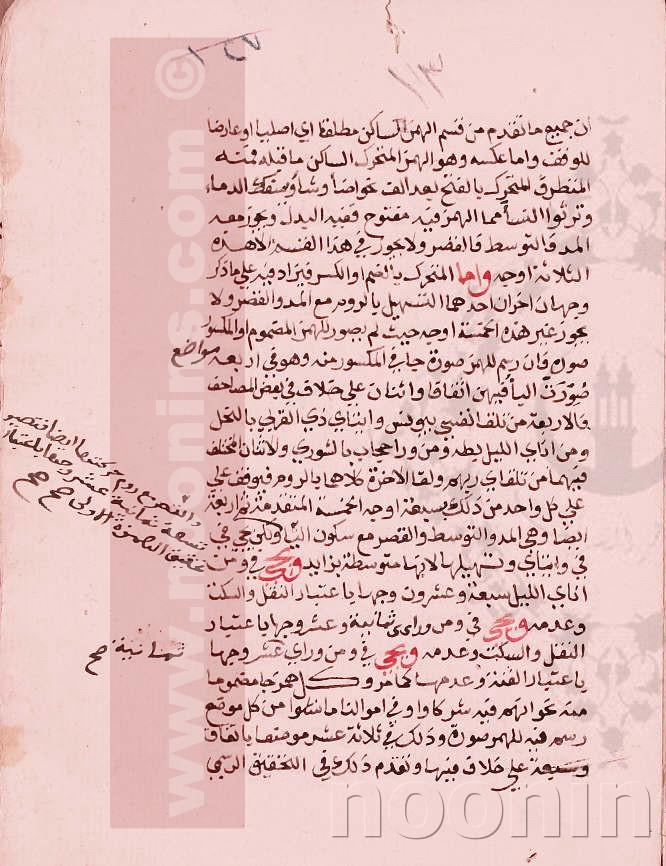 ١٦٧
١١٣
ان جميع ما تقدم من قسم الهمز الساكن مطلقا اي اصليا او عارضا
للوقف واما عكسه وهو الهمز المتحرك الساكن ما قبله فمنه
المتطرف المتحرك بالفتح بعد الف نحو اضا وشا ويسفك الدماء
وترثوا النسا مما الهمز فيه مفتوح ففيه البدل ويجوز معه
المد فالتوسط فالقصر ولا يجوز في هذا القسم الا هذه
الثلاثة اوجه واما المتحرك بالضم او الكسر فيزاد فيه على ما ذكر
وجهان اخران احدهما التسهيل بالروم مع المد والقصر ولا
يجوز غير هذه الخمسة اوجه حيث لم يصور للهمز المضموم او المكسور
صورة فان رسم للهمز صورة جا في المكسور منه وهو في اربعة
مواضع
صورت اليا فيهن اتفاقا واثنان على خلاف في بعض المصاحف
فالاربعة من تلقا نفسي بيونس وايتاي ذي القربى بالنحل
ومن اناي الليل بطه ومن وراي حجاب بالشورى والاثنان المختلف
فيهما من تلقاي ربهم ولقا الاخرة كلاهما بالروم فيوقف على
على كل واحد من ذلك بسبعة اوجه الخمسة المتقدمة ثم اربعة
ايضا وهي المد والتوسط والقصر مع سكون اليا ولكن يجي في
في وايتاي وتسهيلها لانها متوسطة بزايد ويجي في ومن
اناي الليل سبعة وعشرون وجها باعتبار النقل والسكت
وعدمه ويجي في ومن وراي ثمانية وعشر وجها باعتبار
النقل والسكت وعدمه ويجي في ومن وراي عشر وجها
باعتبار الغنة وعدمها وكل همز جا مضموما
منه نحو انهم فيه شركاوا وفي اموالنا ما نشوا من كل موضع
رسم فيه للهمز صورة وذلك في ثلاثة عشر موضعا باتفاق
وسبعة على خلاف فيها وتقدم ذلك في التخفيف الرسمي
ثمانية صح
© www.noonins.com
noonin